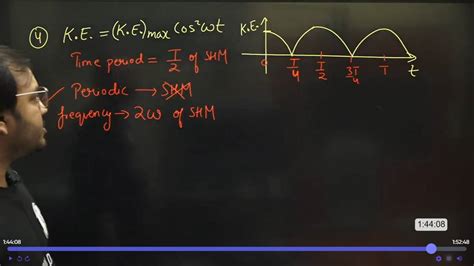 ④ K.E. = (K.E.)max Cos²ωt
Time period = T/2 of SHM
Periodic → SHM
frequency → 2ω of SHM
K.E.
0 T/4 T/2 3T/4 T t
1:44:08
1:44:08 1:52:48